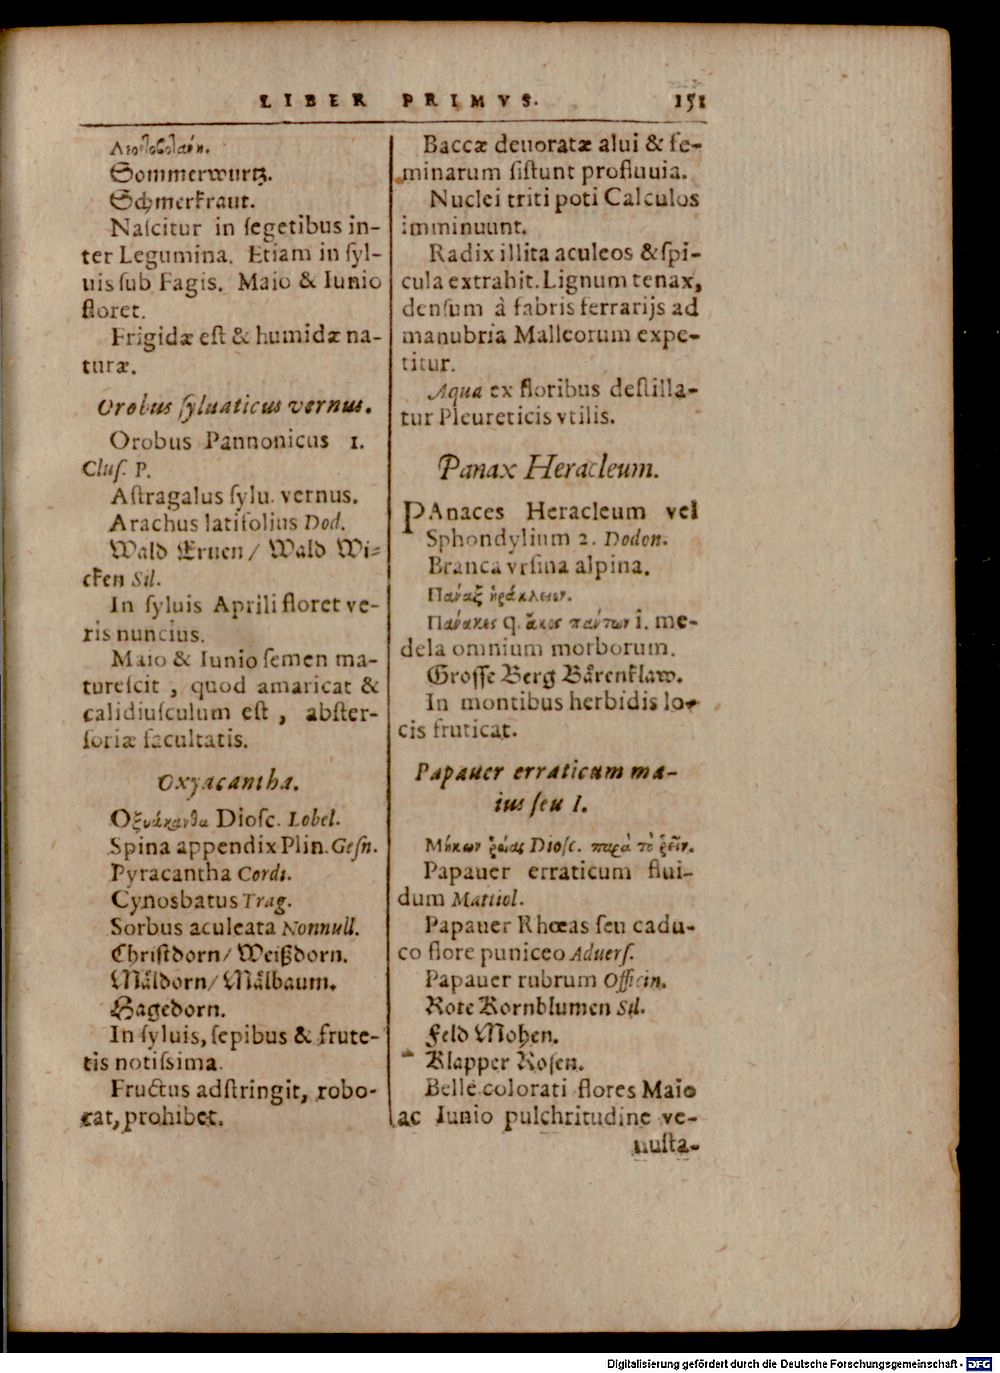 LIBER PRIMVS. 151
Sommerwurtz.
Schmerkraut.
Naſcitur in ſegetibus in-
ter Legumina. Etiam in ſyl-
uis ſub Fagis. Maio & Iunio
floret.
Frigidæ eſt & humidæ na-
turæ.
Orobus ſyluaticus vernus.
Orobus Pannonicus 1.
Cluſ. P.
Aſtragalus ſylu. vernus.
Arachus latifolius Dod.
Wald Eruen/ Wald Wi-
cken Sil.
In ſyluis Aprili floret ve-
ris nuncius.
Maio & Iunio ſemen ma-
tureſcit, quod amaricat &
calidiuſculum eſt, abſter-
ſoriæ facultatis.
Oxyacantha.
Οξυάκανθα Dioſc. Lobel.
Spina appendix Plin. Geſn.
Pyracantha Cordi.
Cynosbatus Trag.
Sorbus aculeata Nonnull.
Chriſtdorn/ Weißdorn.
Mäldorn/ Mälbaum.
Hagedorn.
In ſyluis, ſepibus & frute-
tis notiſsima.
Fructus adſtringit, robo-
rat, prohibet.
Baccæ deuoratæ alui & ſe-
minarum ſiſtunt profluuia.
Nuclei triti poti Calculos
imminuunt.
Radix illita aculeos & ſpi-
cula extrahit. Lignum tenax,
denſum à fabris ferrarijs ad
manubria Malleorum expe-
titur.
Aqua ex floribus deſtilla-
tur Pleureticis vtilis.
Panax Heracleum.
PAnaces Heracleum vel
Sphondylium 2. Dodon.
Branca vrſina alpina.
Πάναξ ἡράκλειον.
Πάνακες q. ἄκος πάντων i. me-
dela omnium morborum.
Groſſe Berg Bärenklaw.
In montibus herbidis lo-
cis fruticat.
Papauer erraticum ma-
ius ſeu I.
Μήκων ῥοιὰς Dioſc. παρὰ τὸ ῥεῖν.
Papauer erraticum flui-
dum Mattiol.
Papauer Rhœas ſeu cadu-
co flore puniceo Aduerſ.
Papauer rubrum Officin.
Rote Kornblumen Sil.
Feld Mohen.
Klapper Roſen.
Belle colorati flores Maio
ac Iunio pulchritudine ve-
nuſta-
Digitalisierung gefördert durch die Deutsche Forschungsgemeinschaft - DFG